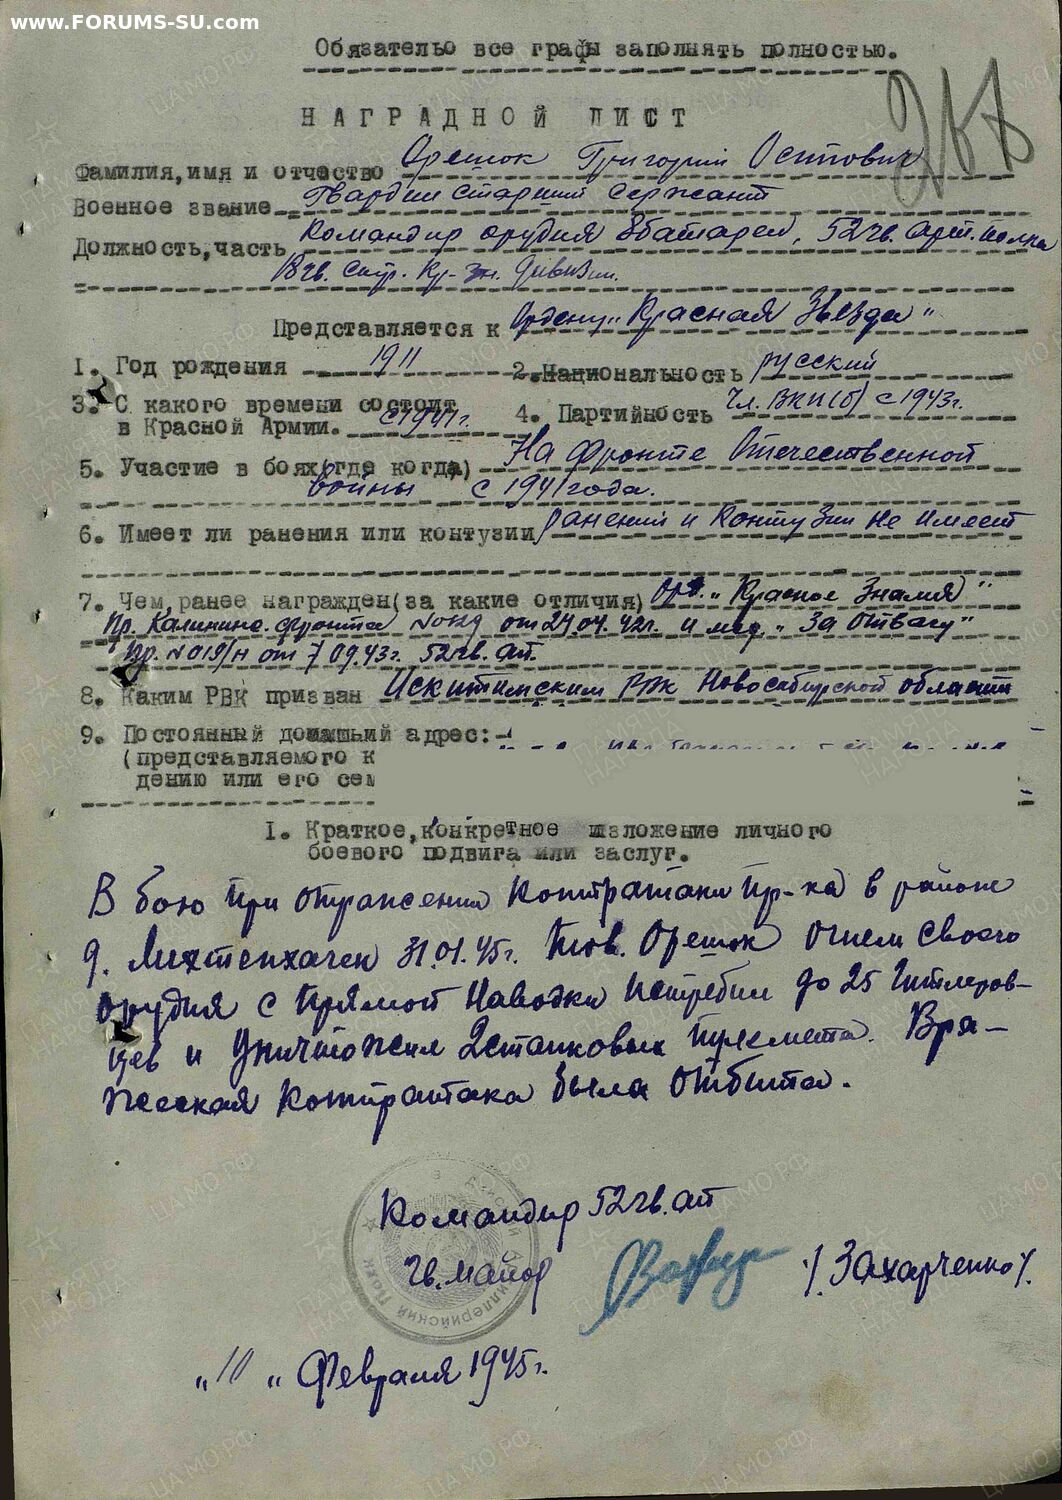 www.FORUMS-SU.com
Обязательо все графы заполнять полностью.
НАГРАДНОЙ ЛИСТ
Фамилия, имя и отчество Орешок Григорий Осипович
Военное звание Гвардии старший сержант
Должность, часть Командир орудия 8 батареи, 52 гв. арт. полка
18 гв. стр. Кр-Зн. дивизии.
Представляется к Ордену „Красная Звезда"
1. Год рождения 1911 2. Национальность русский
3. С какого времени состоит
в Красной Армии. с 1941 г. 4. Партийность Чл. ВКП(б) с 1943 г.
5. Участие в боях(где когда) На фронте Отечественной
войны с 1941 года.
6. Имеет ли ранения или контузии ранений и контузии не имеет
7. Чем ранее награжден(за какие отличия) Орд. „Красное Знамя"
Пр. Калининс. фронта от 24.04.42г. и мед. „За отвагу"
Пр. №019/н от 7.09.43г. 52 гв. ап.
8. Каким РВК призван Искитимским РВК Новосибирской области
9. Постоянный домашний адрес:
(представляемого к
дению или его сем
I. Краткое, конкретное изложение личного
боевого подвига или заслуг.
В бою при отражении контратаки пр-ка в районе
д. Лихтенхаген 31.01.45г. тов. Орешок огнем своего
орудия с прямой наводки истребил до 25 гитлеров-
цев и уничтожил 2 станковых пулемета. Вра-
жеская контратака была отбита.
Командир 52 гв. ап
гв. майор /Захарченко/.
„10" Февраля 1945 г.